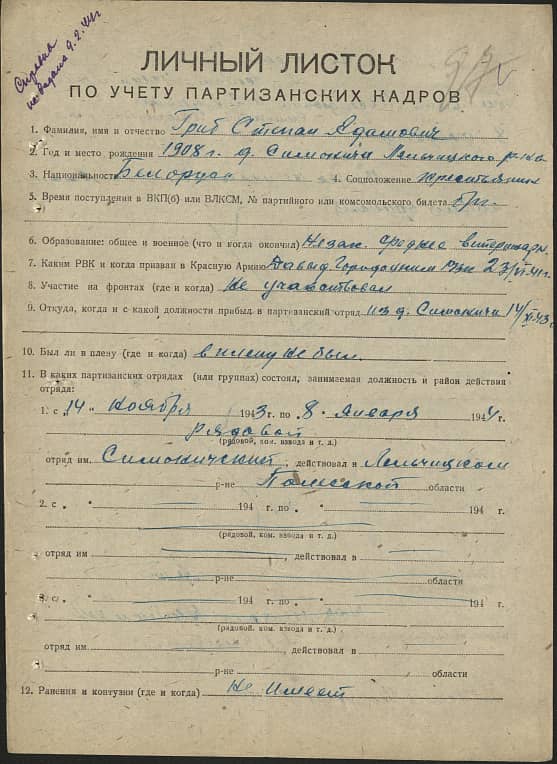 Справка
не выдана 9.2.44г
ЛИЧНЫЙ ЛИСТОК
ПО УЧЕТУ ПАРТИЗАНСКИХ КАДРОВ
1. Фамилия, имя и отчество Гриб Степан Адамович
2. Год и место рождения 1908 г. д. Симоничи Лельчицкого р-на
3. Национальность Белорус 4. Соцположение крестьянин
5. Время поступления в ВКП(б) или ВЛКСМ, № партийного или комсомольского билета б/п.
6. Образование: общее и военное (что и когда окончил) Незак. среднее
7. Каким РВК и когда призван в Красную Армию Давыд. Городокским РВК 23/VI-41г.
8. Участие на фронтах (где и когда) Не участвовал
9. Откуда, когда и с какой должности прибыл в партизанский отряд из д. Симоничи 14/XI-43г.
10. Был ли в плену (где и когда) в плену не был.
11. В каких партизанских отрядах (или группах) состоял, занимаемая должность и район действия
отряда:
1. с "14" ноября 1943 г. по "8" января 1944 г.
рядовой
(рядовой, ком. взвода и т. д.)
отряд им. Симоничский, действовал в Лельчицком
р-не Полесской области
2. с " " 194 г. по " 194 г.
(рядовой, ком. взвода и т. д.)
отряд им , действовал в
р-не области
3. с " " 194 г. по " 194 г.
(рядовой, ком. взвода и т. д.)
отряд им. , действовал в
р-не области
12. Ранения и контузии (где и когда) Не имеет